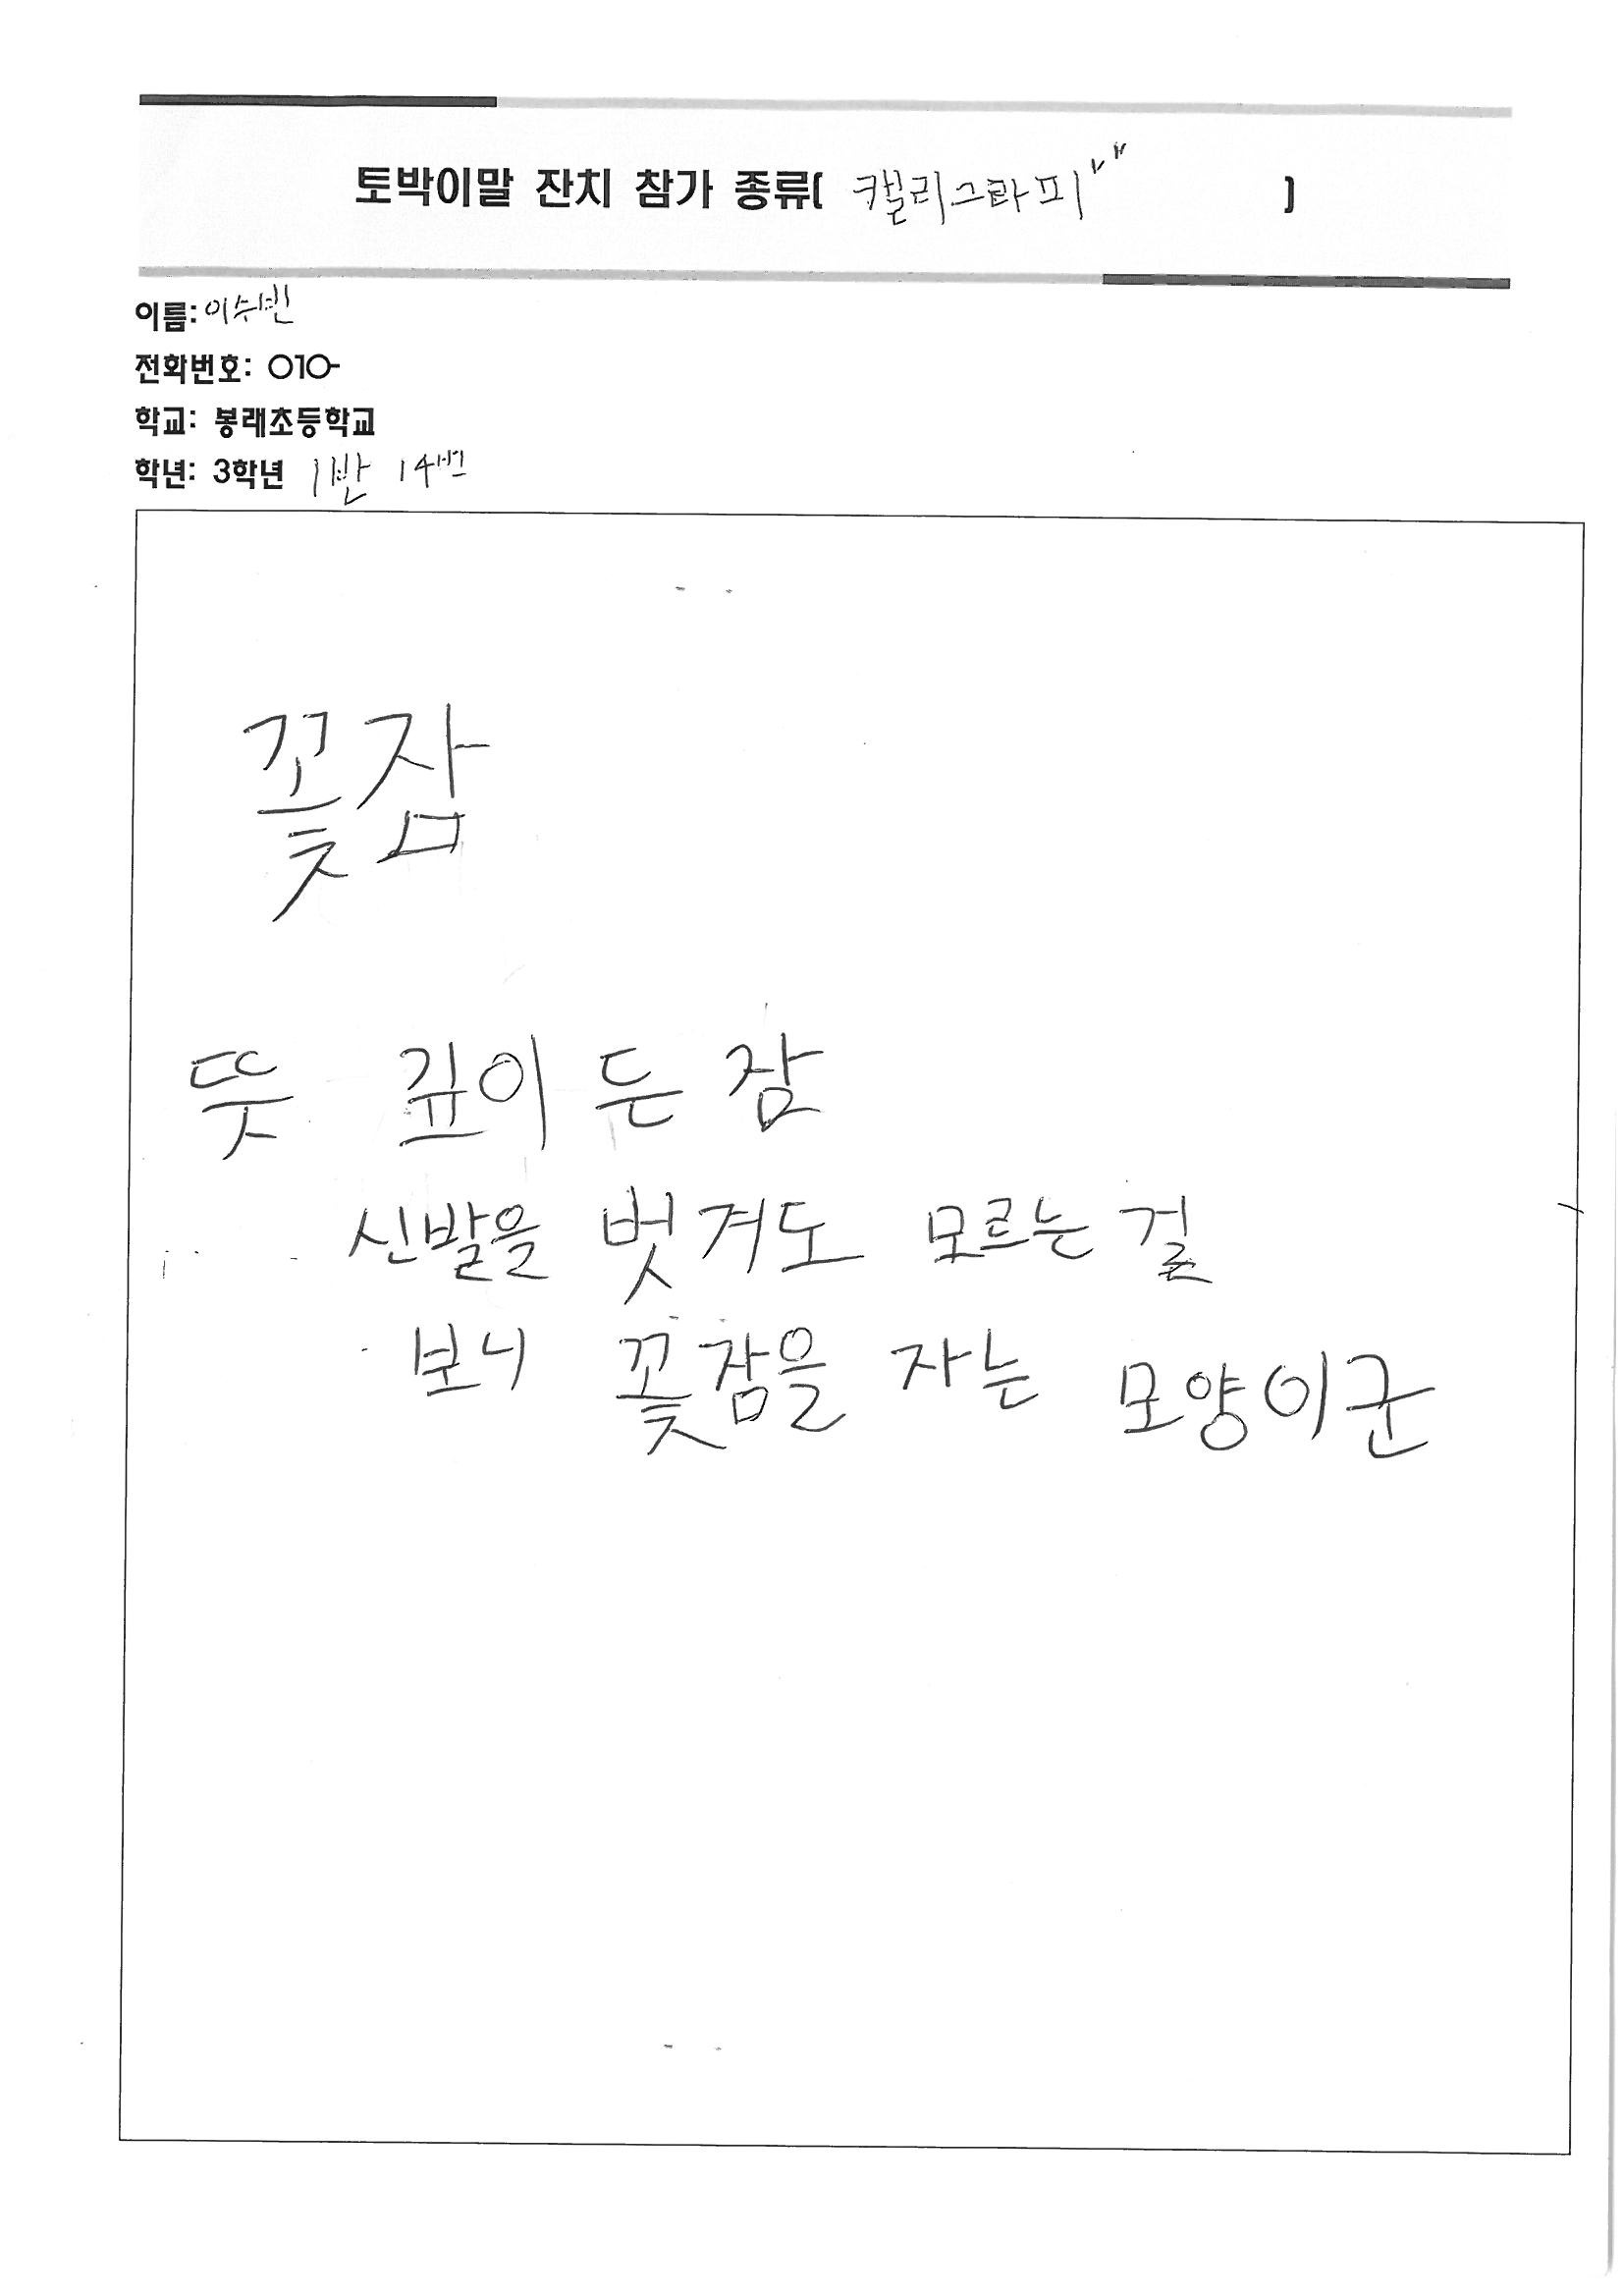 토박이말 잔치 참가 종류( 캘리그라피〃 )
이름: 이수빈
전화번호: 010-
학교: 봉래초등학교
학년: 3학년 1반 14번
꽃잠
뜻 깊이 든 잠
신발을 벗겨도 모르는 걸
보니 꽃잠을 자는 모양이군